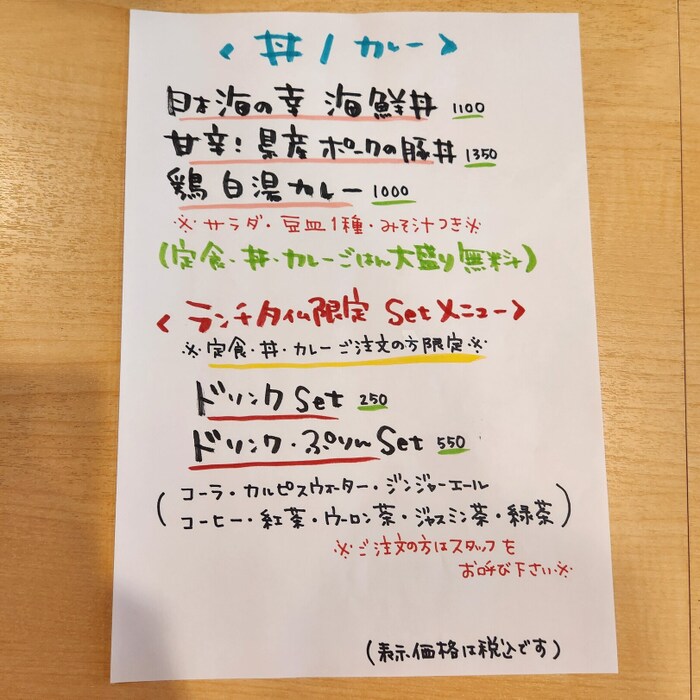 <丼/カレー>
日本海の幸 海鮮丼 1100
甘辛!県産ポークの豚丼 1350
鶏白湯カレー 1000
※サラダ・豆皿1種・みそ汁つき※
(定食・丼・カレーごはん大盛り無料)
<ランチタイム限定 Setメニュー>
※定食・丼・カレーご注文の方限定※
ドリンクSet 250
ドリンク・ぷりんSet 550
(コーラ・カルピスウォーター・ジンジャーエール
コーヒー・紅茶・ウーロン茶・ジャスミン茶・緑茶)
※ご注文の方はスタッフを
お呼び下さい※
(表示価格は税込です)